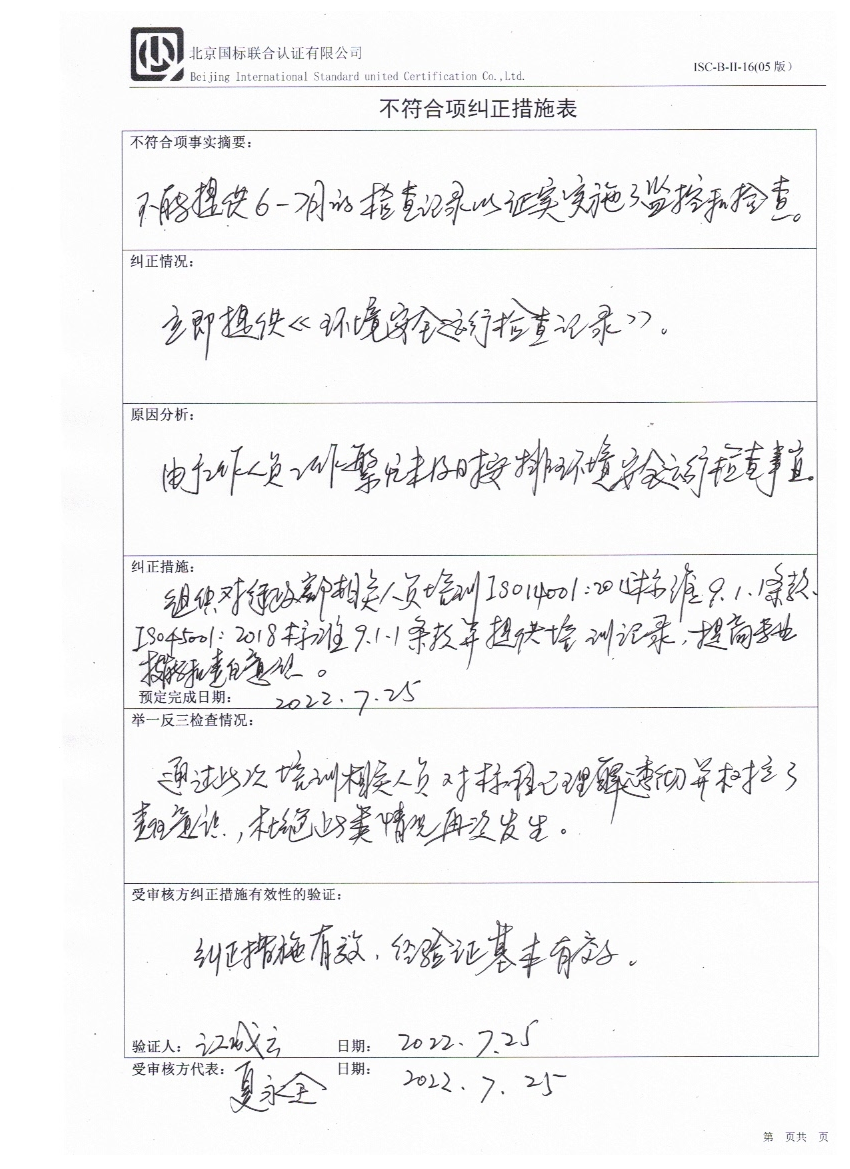 北京国标联合认证有限公司
Beijing International Standard united Certification Co.,Ltd.
ISC-B-II-16(05版)
不符合项纠正措施表
不符合项事实摘要:
不能提供6-7月的检查记录以证实实施了监控和检查。
纠正情况:
立即提供《环境安全运行检查记录》。
原因分析:
由于工作人员工作繁忙未及时安排环境安全运行检查事宜。
纠正措施:
组织对行政部相关人员培训ISO14001:2015标准9.1.1条款、
ISO45001:2018标准9.1.1条款并提供培训记录,提高专业
技能和责任意识。
预定完成日期: 2022.7.25
举一反三检查情况:
通过此次培训相关人员对标程已理解透彻并加控了
责任意识,杜绝此类情况再次发生。
受审核方纠正措施有效性的验证:
纠正措施有效,经验证基本有效。
验证人: 日期: 2022.7.25
受审核方代表: 夏永全 日期: 2022.7.25
第 页共 页